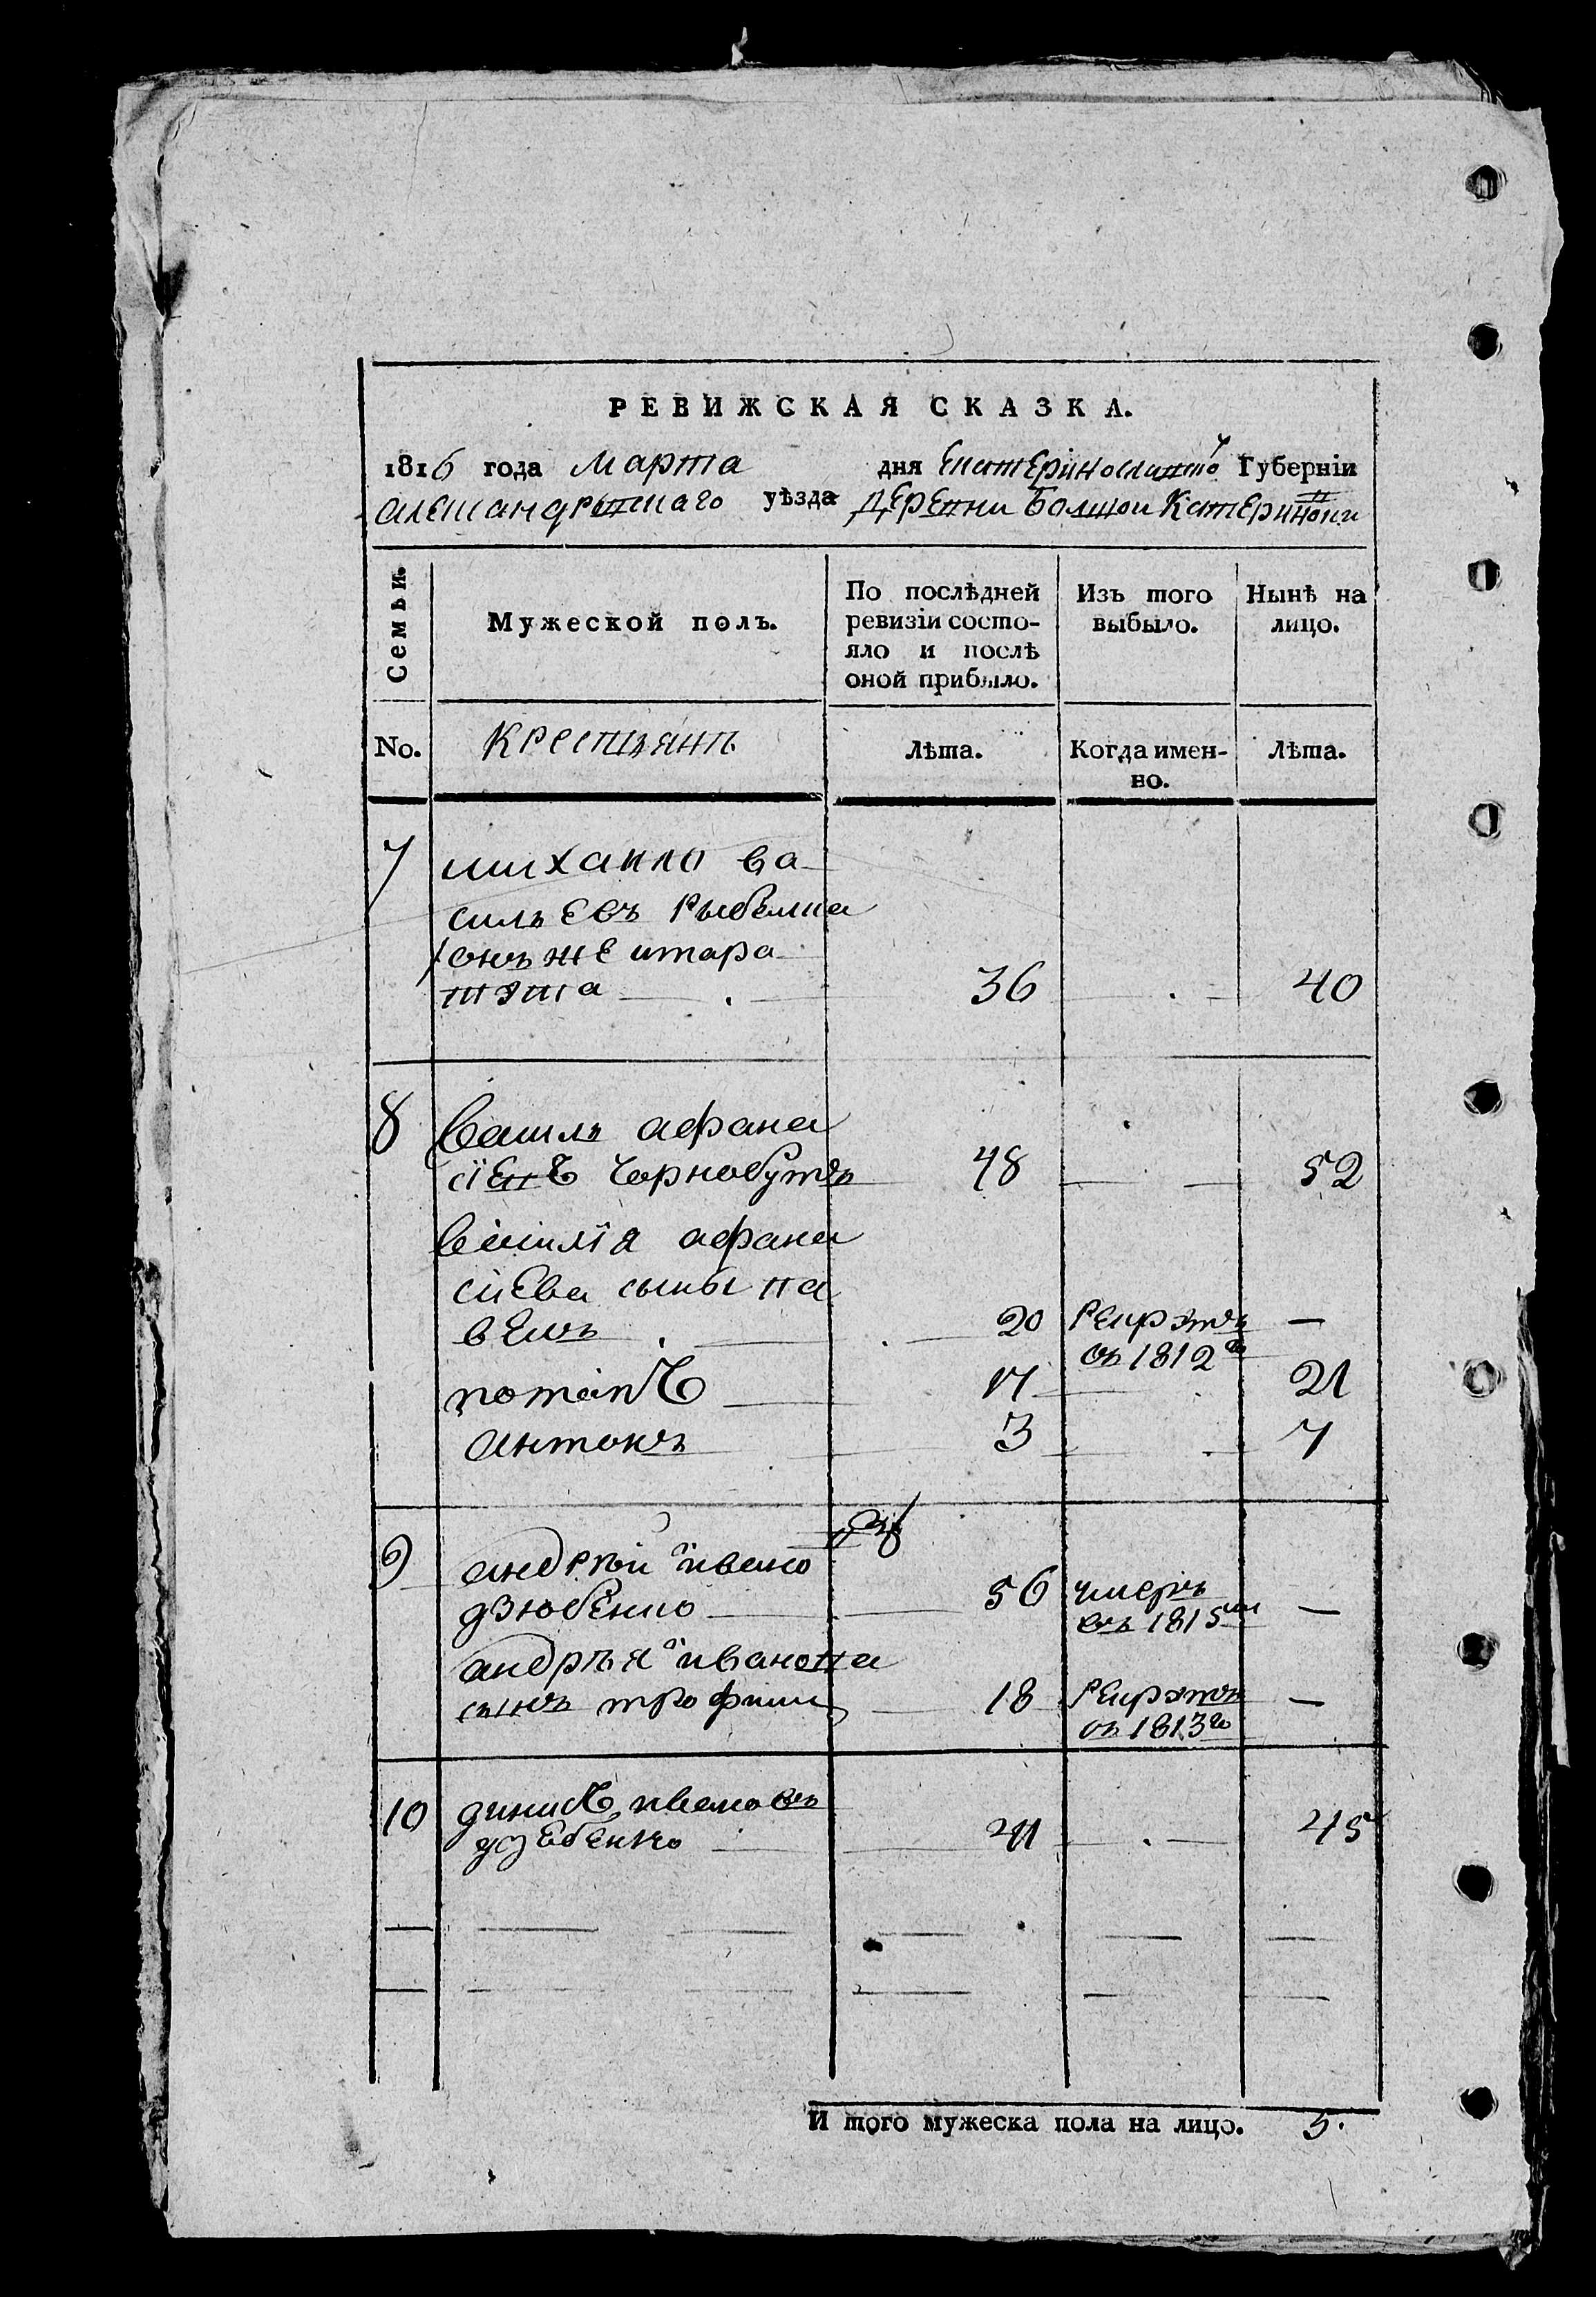 РЕВИЖСКАЯ СКАЗКА.
1816 года Марта дня Екатеринославской Губерніи
александрѣвскаго уѣзда Деревни Болшой Катериновки
Семьи.
Мужеской полъ.
По послѣдней ревизіи состо-яло и послѣ оной прибыло.
Изъ того выбыло.
Нынѣ на лицо.
No.
Крестьянъ
Лѣта.
Когда имен-но.
Лѣта.
7 михаило ва
сильевъ Рыбалка
онъ же
36 40
8 василь афана
сіевъ Чорнобукъ 48 52
василія афана
сиева сыны па
велъ 20 Рекрэтъ —
въ 1812
потапъ 17 21
антонъ 3 7
9 андрѣй ивано
дзюбенко 56 умеръ —
въ 1815м
андрѣя иванова
сынъ трофимъ 18 Рекрэтъ —
въ 1813го
10 динисъ ивановъ
дзюбенко 41 45
И того мужеска пола на лицо. 5.